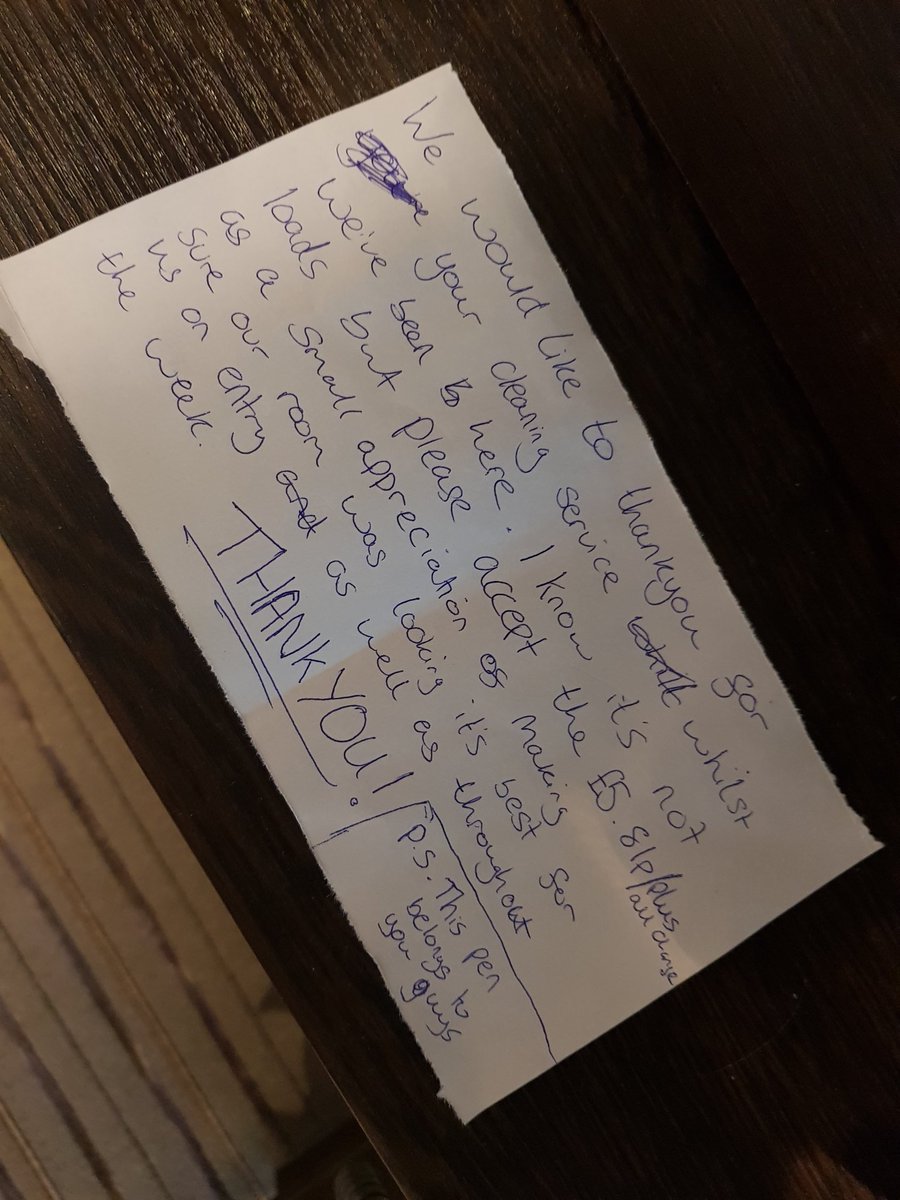 We would like to thankyou for
your cleaning service whilst
we've been to here. I know it's not
loads but please accept the £5.81p/plus
as a small appreciation as making
sure our room was looking it's best for
us on entry as well as throughout
the week.
THANK YOU!
all change
P.S. This pen
belongs to
you guys